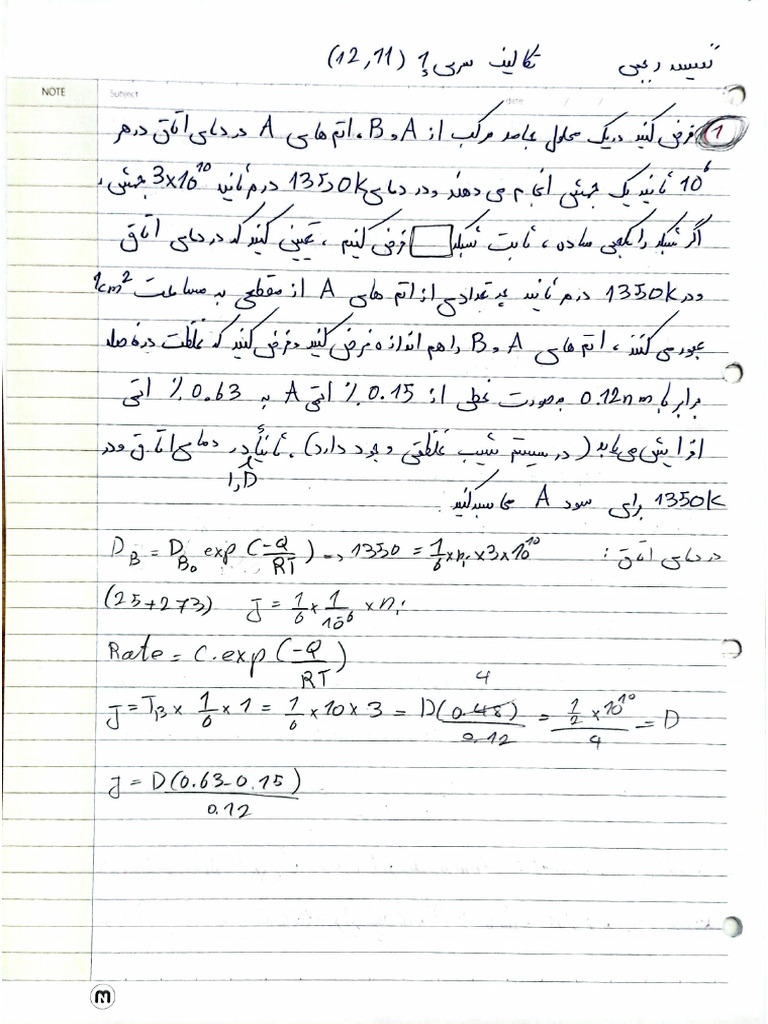 تکالیف سری 1 (12,11)
NOTE
Subject
date / /
1 فرض کنید در یک محلول جامد مرکب از A و B، اتم های A در دمای اتاق در هر
10⁶ ثانیه یک جهش انجام می دهند و در دمای 1350k در هر ثانیه 3×10¹⁰ جهش،
اگر شبکه را مکعبی ساده، ثابت شبکه فرض کنیم، تعیین کنید که در دمای اتاق
و در 1350k در هر ثانیه چه تعدادی از اتم های A از مقطعی به مساحت 1cm²
عبور می کنند، اتم های A و B را هم اندازه فرض کنید و فرض کنید که غلظت در فاصله
برابر با 0.12nm به صورت خطی از 0.15٪ اتمی A به 0.63٪ اتمی
افزایش می یابد (در سیستم شیب غلظتی وجود دارد). ثانیاً در دمای اتاق و در
D
1350k برای نفوذ A محاسبه کنید.
در دمای اتاق : D_B = D_B₀ exp(-Q/RT) → 1350 = 1/6 × nᵢ × 3×10¹⁰
(25+273) J = 1/6 × 1/10⁻⁶ × nᵢ
Rate = C.exp(-Q/RT)
4
J = T_B × 1/6 × 1 = 1/6 × 10 × 3 = D(0.48)/0.12 = 1/2 × 10¹⁰/4 = D
J = D(0.63-0.15)/0.12
m